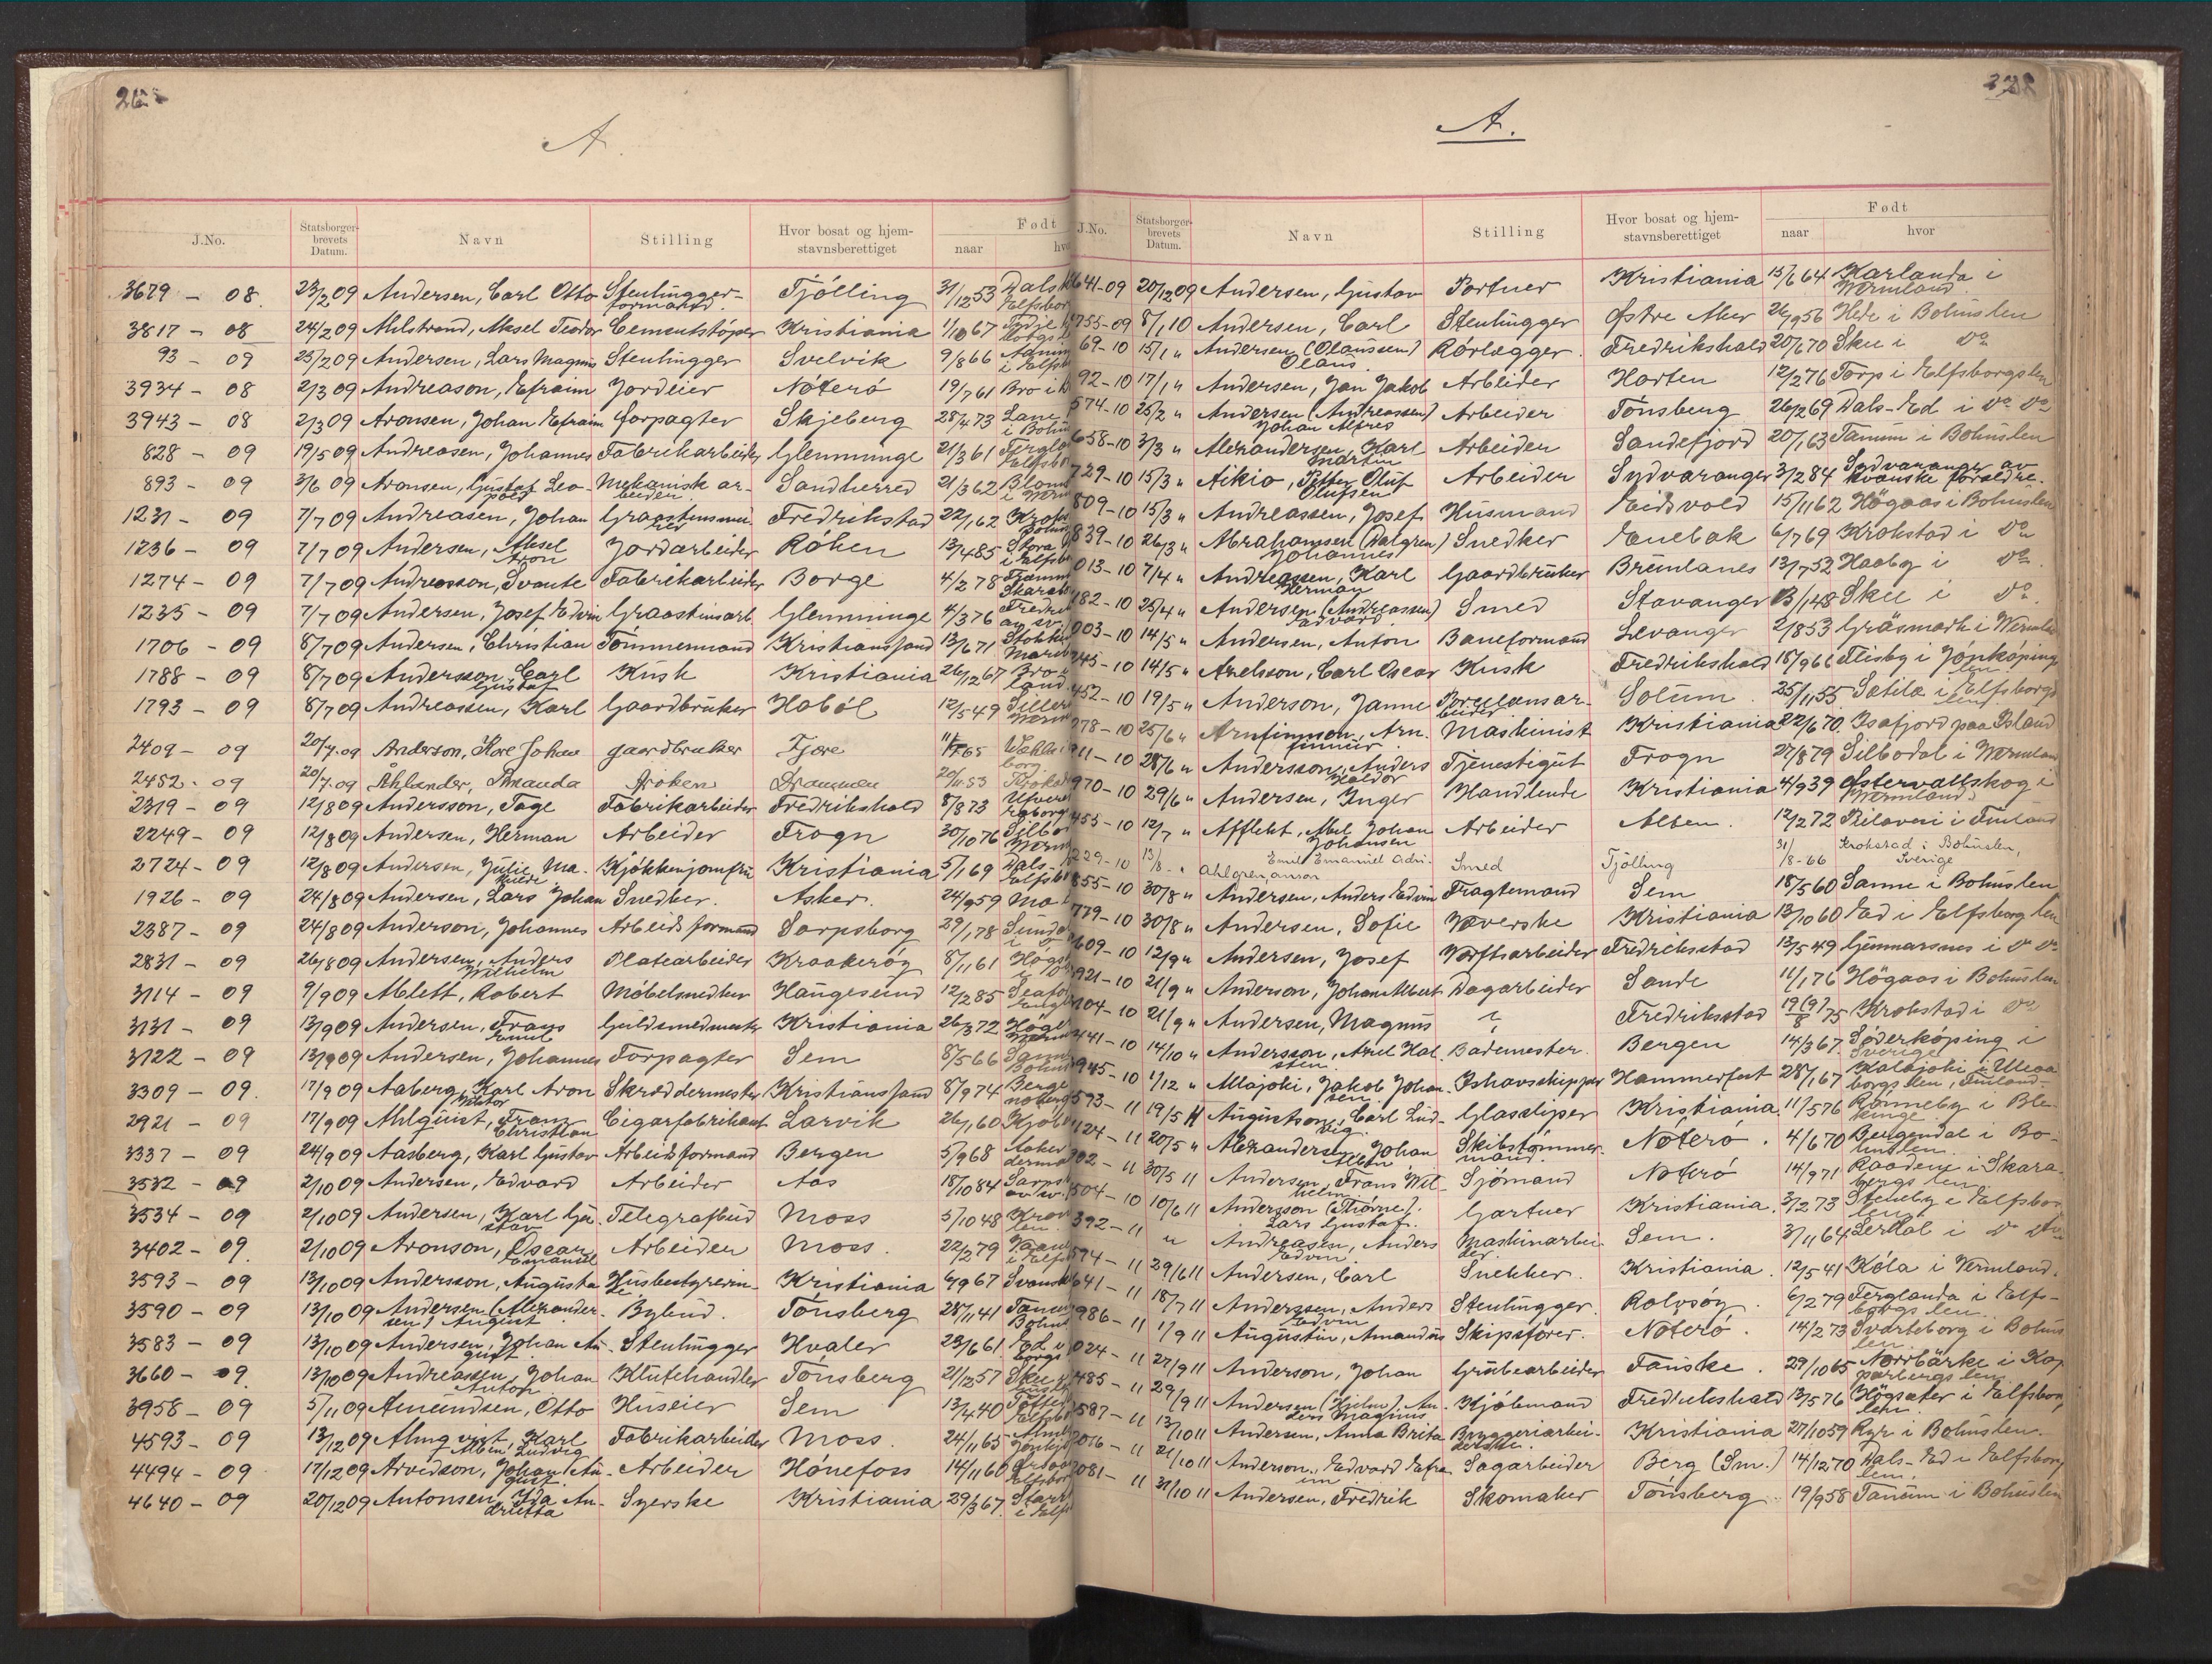 A.
J.No. Statsborger-brevets Datum. Navn Stilling Hvor bosat og hjem-stavnsberettiget naar Født
3679 - 08. 23/2 09 Andersen, Carl Otto Stenhugger-formand. Tjölling 31/12 53 Dals
3817 - 08 24/2 09 Ahlstrand, Aksel Teodor Cementstöper Kristiania 1/10 67
93 - 09 25/2 09 Andersen, Lars Magnus Stenhugger Svelvik 9/8 66
3934 - 08 2/3 09 Andreason, Efraim Jordeier Nöterö 19/7 61 Bro i
3943 - 08 2/3 09 Aronsen, Johan Efraim Forpagter Skjeberg 28/4 73 Lane i Bohus
828 - 09 19/5 09 Andreasen, Johannes Fabrikarbeider Glemminge 21/3 61
893 - 09 3/6 09 Aronsen, Gustaf Leo-pold Mekanisk ar-beider. Sandherred 21/3 62
1231 - 09 7/7 09 Andreasen, Johan Fredrikstad 22/1 62
1236 - 09 7/7 09 Andersen, Aksel Aron Jordarbeider Röken 13/4 85 Stora
1274 - 09 7/7 09 Andreasson, Svante Fabrikarbeider Borge 4/2 78
1235 - 09 7/7 09 Andersen, Josef Edvin Graastensarb. Glemminge 4/3 76
1706 - 09 8/7 09 Andersen, Christian Tömmermand Kristianssand 13/6 71
1788 - 09 8/7 09 Andersson, Carl Gustaf Kusk Kristiania 26/12 67 Bro
1793 - 09 8/7 09 Andreassen, Karl Gaardbruker Haböl 12/5 49
2409 - 09 20/7.09 Anderson, Kore Johan gaardbruker Fjære 65
2452 - 09 20/7.09 Åhlander, Amanda Frøken Drammen 53
2319 - 09 12/8 09 Andersson, Tage Fabrikarbeider Fredrikshald 8/8 73
2249 - 09 12/8 09 Andersen, Herman Arbeider Frogn 30/10 76
2724 - 09 12/8 09 Andersen, Julie Ma-thilde Kjökkenjomfru Kristiania 5/1 69 Dals-
1926 - 09 24/8 09 Andersen, Lars Johan Snedker. Asker. 24/9 59
2387 - 09 24/8 09 Anderson, Johannes Arbeidsformand Sarpsborg 29/1 78
2831 - 09 26/8 09 Andersen, Anders Wilhelm Platearbeider Kraakeröy 8/11 61
3114 - 09 9/9 09 Ablett, Robert Möbelsnedker Haugesund 12/2 85
3131 - 09 13/9 09 Andersen, Frans Emil Guldsmedmester Kristiania 26/3 72
3122 - 09 13/9 09 Andersen, Johannes Forpagter Sem 8/5 66
3309 - 09. 17/9 09 Aaberg, Karl Aron Viktor Skræddermester Kristianssand 8/9 74 Berge
2921 - 09 17/9 09 Ahlquist, Frans Christian Cigarfabrikant Larvik 26/1 60
3337 - 09 24/9 09 Aasberg, Karl Gustav Arbeidsformand Bergen 5/9 68
3532 - 09 2/10 09 Andersen, Edvard Arbeider Aas 18/10 84
3534 - 09 2/10 09 Andersen, Karl Gu-stav Telegrafbud Moss 5/10 48
3402 - 09. 2/10 09 Aronson, Oscar Emanuel Arbeider Moss. 22/2 79
3593 - 09 13/10 09 Andersson, Augusta Husbestyrerin- Kristiania 6/9 67
3590 - 09 13/10 09 Andersen (Alexander-sen) August Bybud. Tönsberg 28/11 41
3583 - 09 13/10 09 Andersen, Johan Au-gust Stenhugger Hvaler 23/6 61
3660 - 09. 13/10 09 Andreassen, Johan Anton Klutehandler Tönsberg 21/12 57
3958 - 09 5/11 09 Amundsen, Otto Huseier Sem 13/4 40
4593 - 09 13/12 09 Almqvist, Karl Albin Ludvig Fabrikarbeider Moss. 24/11 65
4494 - 09 17/12 09 Arvidson, Johan Au-gust Arbeider Hönefoss 14/11 60
4640 - 09 20/12 09 Antonsen, Ida An- Syerske Kristiania 29/3 67.
A.
J.No. Statsborger-brevets Datum. Navn Stilling Hvor bosat og hjem-stavnsberettiget Født naar hvor
641-09 20/12 09 Andersen, Gustav Portner Kristiania 15/1 64 Karlanda i Wermland.
755-09 8/1 10 Andersen, Carl Stenhugger Østre Aker 26/9 56 Hede i Bohuslen
69-10 15/1 " Andersen (Olaussen) Olaus Rörlægger. Fredrikshald 20/6 70 Skee i do
92-10 17/1 " Andersen, Jan Jakob Arbeider Horten 12/2 76 Torp i Elfsborgslen
574-10 25/2 " Andersen (Andreassen) Johan Alfred Arbeider Tönsberg 26/2 69 Dals-Ed i do do
658-10 3/3 " Alexandersen, Karl Martin Arbeider Sandefjord 20/1 63 Tanum i Bohuslen
729-10 15/3 " Aikio, Petter Oluf Olufsen Arbeider Sydvaranger 3/2 84 Sydvaranger av kvænske forældre.
809-10 15/3 " Andreassen, Josef Husmand Eidsvold 15/11 62 Högaas i Bohuslen
839-10 26/3 " Abrahamsen (Dalgren) Johannes Snedker Enebak 6/7 69 Krokstad i do
013-10 7/4 " Andreassen, Karl Herman Gaardbruker Brunlanes 13/7 52 Haaby i do.
182-10 25/4 " Andersen (Andreassen) Edvard Smed Stavanger 13/1 48 Skee i do.
003-10 14/5 " Andersen, Anton Baneformand Levanger 2/8 53 Gräsmark i Wermland
-10 14/5 " Axelsson, Carl Oscar Kusk Fredrikshald 18/9 66 Flisby i Jönköpings len
452-10 19/5 " Anderson, Janne Porcelænsar-beider Solum. 25/11 55 Sätila i Elfsborgs len.
078-10 25/6 " Arnfinnsen, Arn. Maskinist Kristiania 22/6 70. Isafjord paa Island
911-10 28/6 " Andersson, Anders Haldor Tjenestegut Frogn 27/8 79 Silbodal i Wermland
970-10 29/6 " Andersen, Inger Handlende Kristiania 4/9 39 Østervallskog i Wermland
455-10 12/7 " Afflekt, Abel Johan Johansen Arbeider Alten. 12/2 72 Pielavesi i Finland
229-10 13/8 - " Ahlgren, Emil Emanuel Adri-anson Smed Tjölling 31/8-66 Krokstad i Bohuslen, Sverige
855-10 30/8 " Andersen, Anders Edvin Fragtemand Sem 18/5 60 Sanne i Bohuslen
779-10 30/8 " Andersen, Sofie Væverske Kristiania 13/10 60 Ed i Elfsborg len
609-10 12/9 " Andersen, Josef Værftsarbeider Fredriksstad 13/5 49 Gunnarsnes i do do
921-10 21/9 " Anderson, Johan Albert Dagarbeider Sande 11/1 76 Högaas i Bohuslen
104-10 21/9 " Andersen, Magnus ? Fredriksstad 19(9)/8 75 Krokstad i do
441-10 14/10 " Andersson, Axel Hal-sten Bademester. Bergen 14/3 67. Söderköping i Sverige
945-10 1/12 " Alajoki, Jakob Johan-sen. Ishavsskipper Hammerfest 28/1 67 Kalajoki i Uleaa-borgs len, Finland-
593-11 19/5 11 Augustson, Carl Lud-vig. Glassliper Kristiania. 11/5 76 Rønneby i Ble-kinge
124-11 20/5 " Alexandersen, Johan Albin Skibstömmer-mand. Nøterö. 4/6 70 Bergendal i Bo-huslen.
02-11 30/5 11 Andersen, Frans Wil-helm Sjömand Nøterö 14/9 71 Raadene i Skara-borgs len.
504-10 10/6 11 Andersson (Thörne). Lars Gustaf. Gartner Kristiania. 3/2 73 Steneby i Elfsborg len
392-11 " Andreasen, Anders Edvin Maskinarbei-der. Sem. 3/11 64 Lerdal i do do
594-11 29/6 11 Andersen, Carl Snekker. Kristiania. 12/5 41 Köla i Vermland.
641-11 18/7 11 Anderssen, Anders Edvin Stenhugger. Rolvsöy. 6/2 79 Ferglanda i Elfs-borgs len.
986-11 1/9 11 Augustin, Amandus Skipsförer. Nøterö. 14/2 73 Svarteborg i Bohus len.
024-11 27/9 11 Anderson, Johan Grubearbeider Fauske. 29/10 65 Norrbärke i Kop-parbergs len.
485-11 29/9 11 Andersen (Hjelm), An-ders Magnus Kjöbmand Fredrikshald 13/5 76 Högsäter i Elfsborg len.
587-11 13/10 11 Andersen, Anna Brita Bryggeriarbei-derske. Kristiania 27/10 59 Ryr i Bohuslen.
2016-11 21/10 11 Anderson, Edvard Efra-im Sagarbeider Berg (Sm.) 14/12 70 Dals-Ed i Elfsborg len.
081-11 31/10 11 Andersen, Fredrik Skomaker Tönsberg 19/9 58 Tanum i Bohuslen